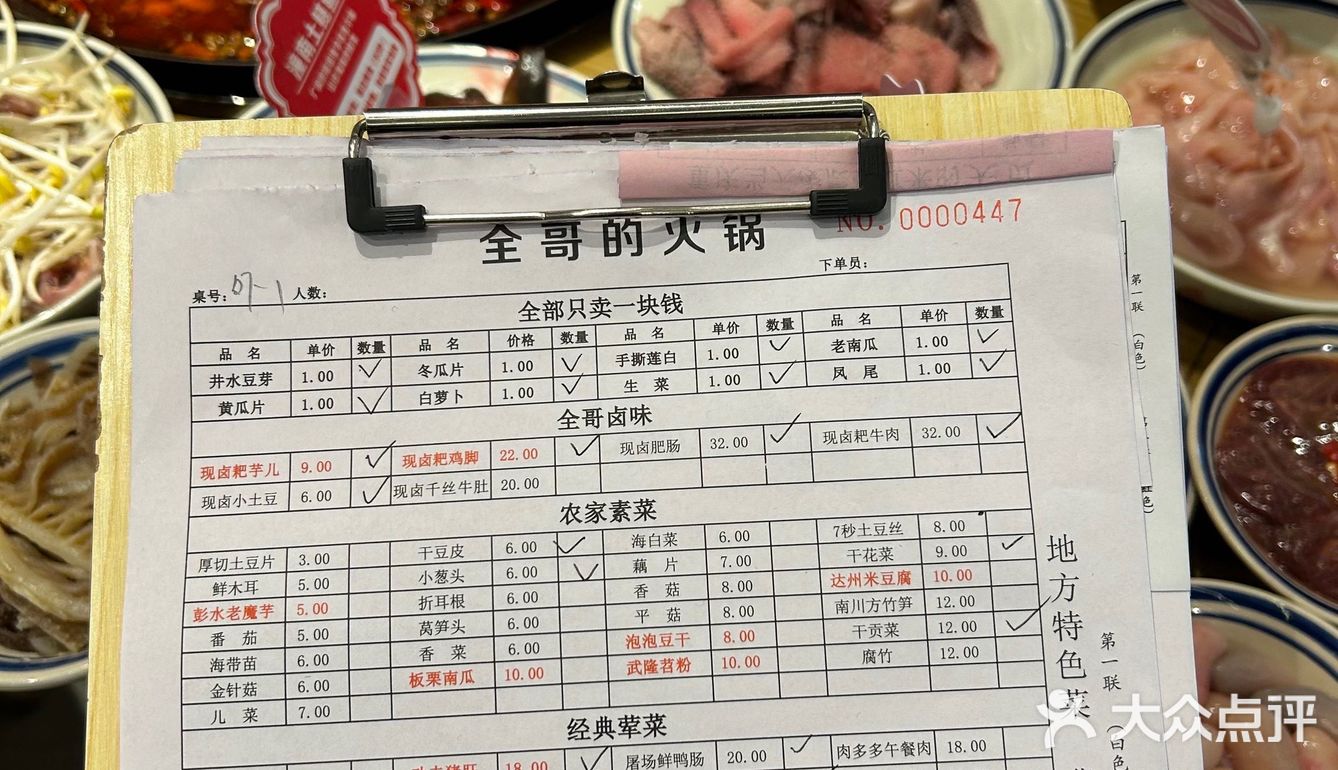 全哥的火锅
NO. 0000447
桌号: 07-1 人数: 下单员:
全部只卖一块钱
品 名 单价 数量 品 名 价格 数量 品 名 单价 数量 品 名 单价 数量
井水豆芽 1.00 ✓ 冬瓜片 1.00 ✓ 手撕莲白 1.00 ✓ 老南瓜 1.00 ✓
黄瓜片 1.00 ✓ 白萝卜 1.00 ✓ 生 菜 1.00 ✓ 凤 尾 1.00 ✓
全哥卤味
现卤耙芋儿 9.00 ✓ 现卤耙鸡脚 22.00 ✓ 现卤肥肠 32.00 ✓ 现卤耙牛肉 32.00 ✓
现卤小土豆 6.00 ✓ 现卤千丝牛肚 20.00
农家素菜
厚切土豆片 3.00 干豆皮 6.00 ✓ 海白菜 6.00 7秒土豆丝 8.00
鲜木耳 5.00 小葱头 6.00 ✓ 藕 片 7.00 干花菜 9.00 ✓
彭水老魔芋 5.00 折耳根 6.00 香 菇 8.00 达州米豆腐 10.00
番 茄 5.00 莴笋头 6.00 平 菇 8.00 南川方竹笋 12.00
海带苗 6.00 香 菜 6.00 泡泡豆干 8.00 干贡菜 12.00 ✓
金针菇 6.00 板栗南瓜 10.00 武隆苕粉 10.00 腐竹 12.00
儿 菜 7.00
经典荤菜
18.00 ✓ 屠场鲜鸭肠 20.00 ✓ 肉多多午餐肉 18.00
地方特色菜
第一联 (白色
第一联 (白色)
大众点评